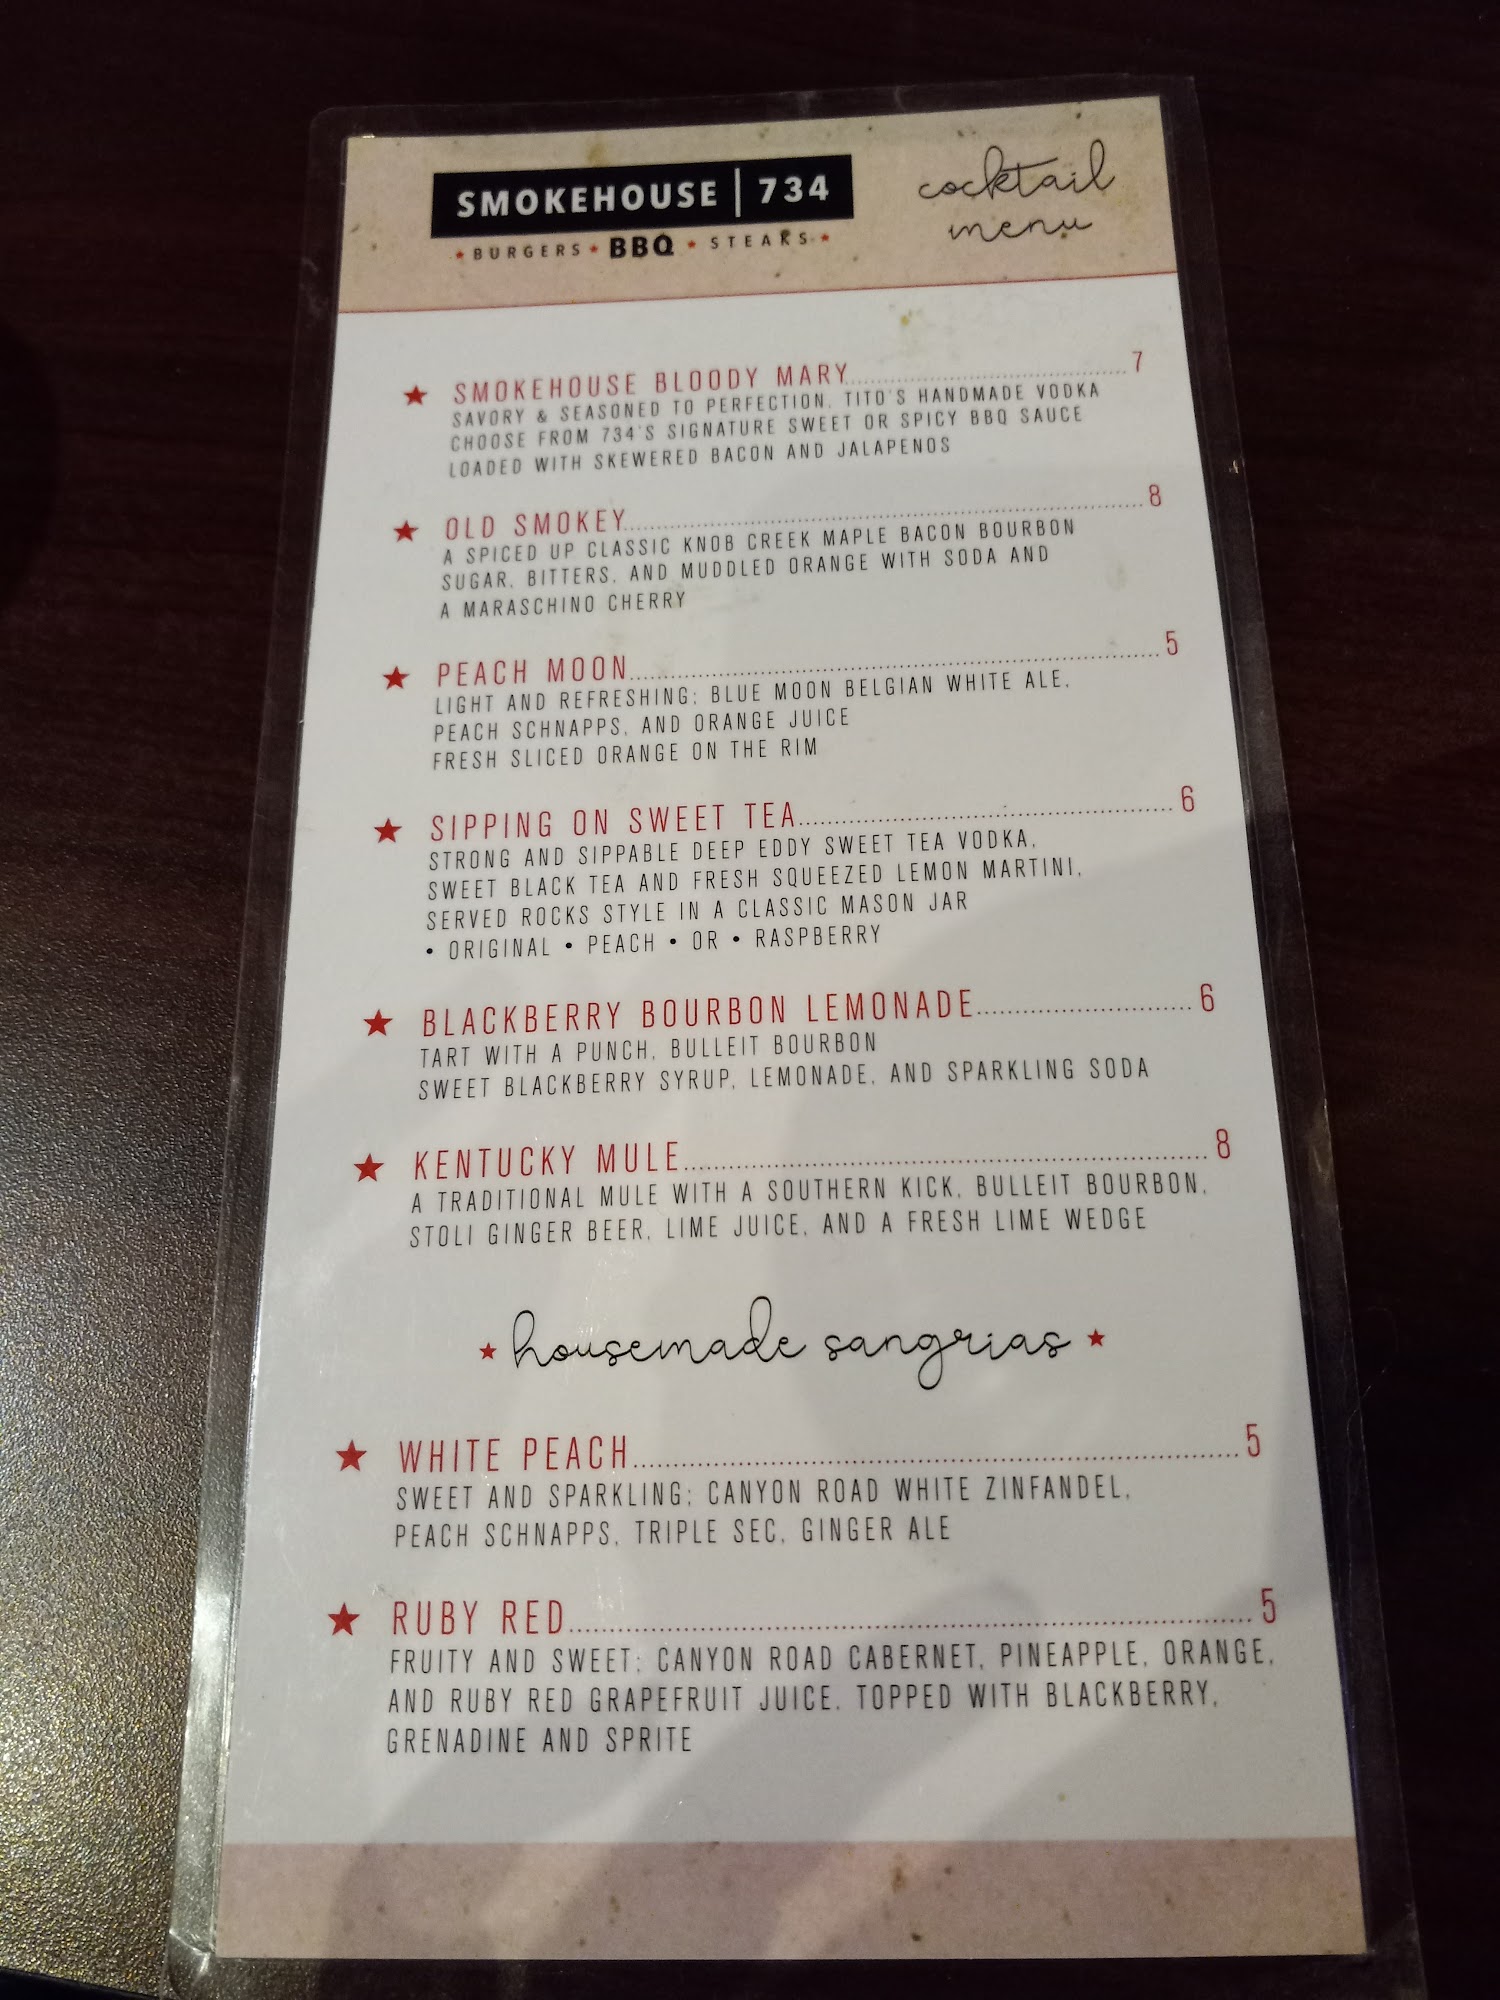 SMOKEHOUSE | 734
BURGERS ★ BBQ ★ STEAKS
cocktail
menu
★ SMOKEHOUSE BLOODY MARY 7
SAVORY & SEASONED TO PERFECTION, TITO'S HANDMADE VODKA
CHOOSE FROM 734'S SIGNATURE SWEET OR SPICY BBQ SAUCE
LOADED WITH SKEWERED BACON AND JALAPENOS
★ OLD SMOKEY 8
A SPICED UP CLASSIC KNOB CREEK MAPLE BACON BOURBON
SUGAR, BITTERS, AND MUDDLED ORANGE WITH SODA AND
A MARASCHINO CHERRY
★ PEACH MOON 5
LIGHT AND REFRESHING; BLUE MOON BELGIAN WHITE ALE,
PEACH SCHNAPPS, AND ORANGE JUICE
FRESH SLICED ORANGE ON THE RIM
★ SIPPING ON SWEET TEA 6
STRONG AND SIPPABLE DEEP EDDY SWEET TEA VODKA,
SWEET BLACK TEA AND FRESH SQUEEZED LEMON MARTINI,
SERVED ROCKS STYLE IN A CLASSIC MASON JAR
• ORIGINAL • PEACH • OR • RASPBERRY
★ BLACKBERRY BOURBON LEMONADE 6
TART WITH A PUNCH, BULLEIT BOURBON
SWEET BLACKBERRY SYRUP, LEMONADE, AND SPARKLING SODA
★ KENTUCKY MULE 8
A TRADITIONAL MULE WITH A SOUTHERN KICK, BULLEIT BOURBON,
STOLI GINGER BEER, LIME JUICE, AND A FRESH LIME WEDGE
★ housemade sangrias ★
★ WHITE PEACH 5
SWEET AND SPARKLING; CANYON ROAD WHITE ZINFANDEL,
PEACH SCHNAPPS, TRIPLE SEC, GINGER ALE
★ RUBY RED 5
FRUITY AND SWEET; CANYON ROAD CABERNET, PINEAPPLE, ORANGE,
AND RUBY RED GRAPEFRUIT JUICE. TOPPED WITH BLACKBERRY,
GRENADINE AND SPRITE